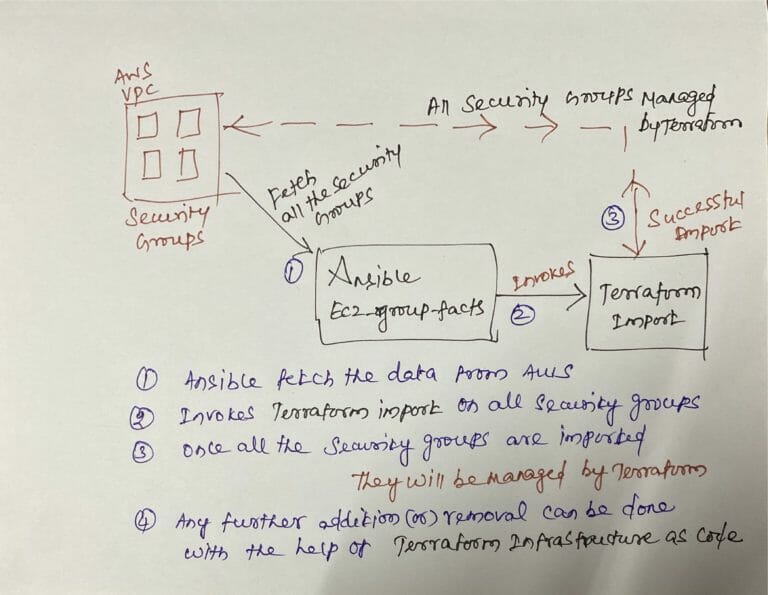 AWS
VPC
All Security Groups Managed
by Terraform
Fetch
all the security
Groups
Security
Groups
③ Successful
Import
①
Ansible
Ec2-group-facts
Invokes
②
Terraform
Import
① Ansible fetch the data from AWS
② Invokes Terraform import on all security groups
③ Once all the security groups are imported
They will be managed by Terraform
④ Any further addition (or) removal can be done
with the help of Terraform Infrastructure as code